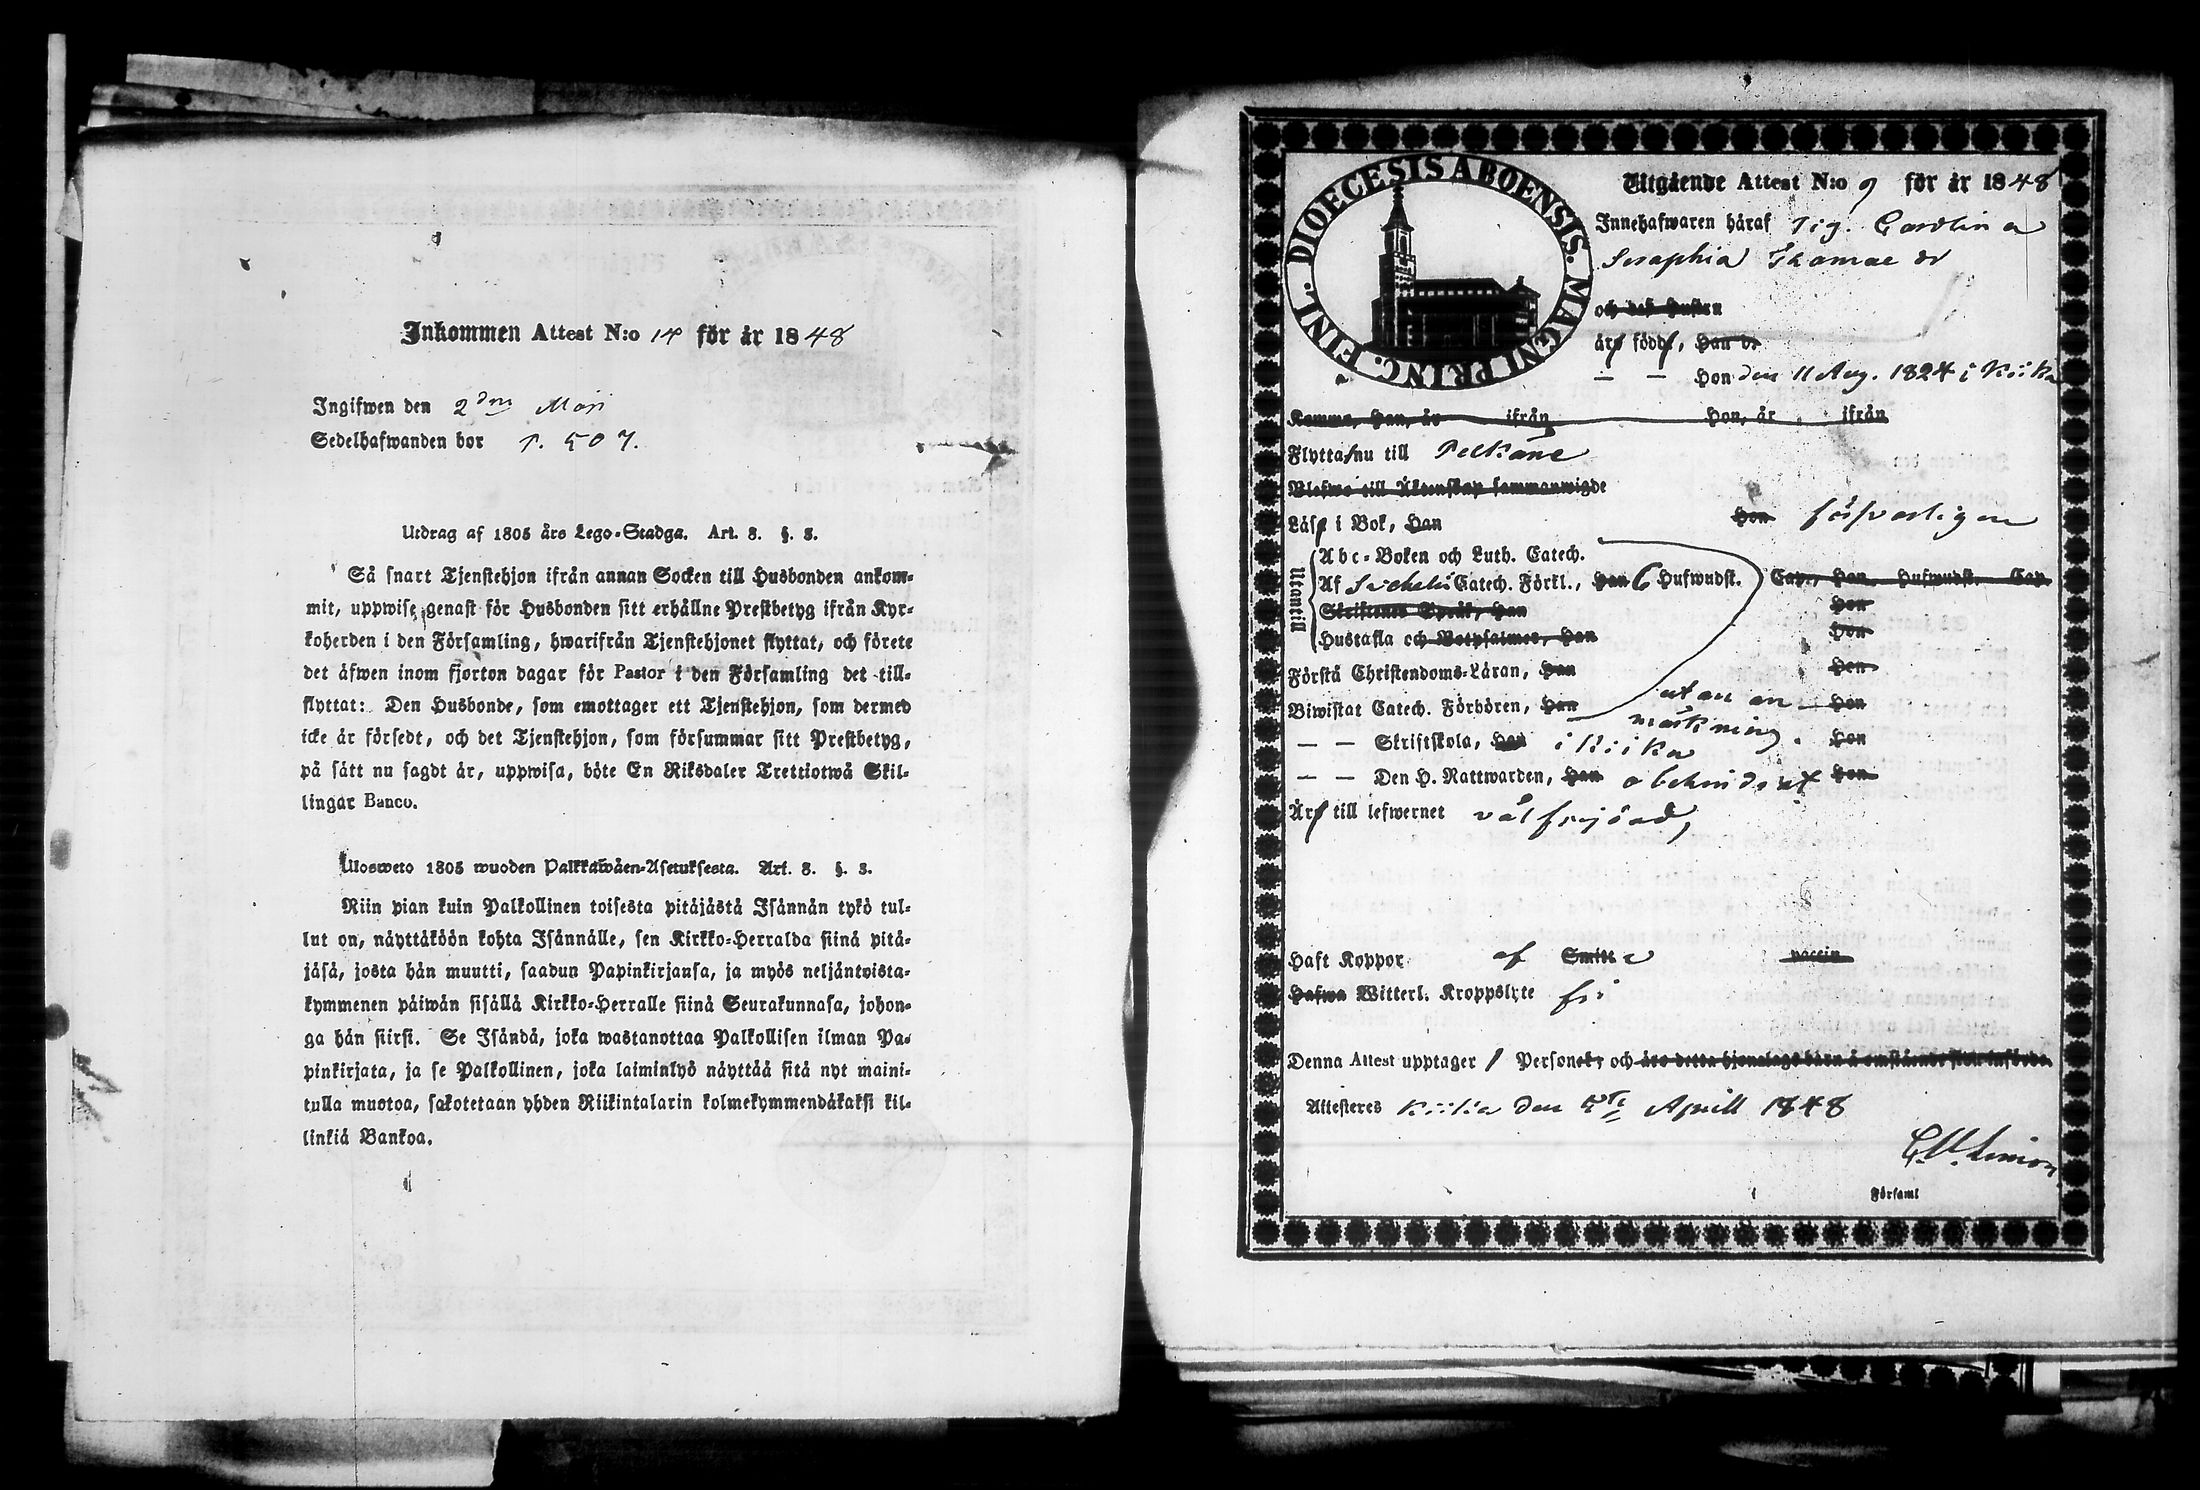 Inkommen Attest N:o 14 för år 1848
Ingifwen den 2dra Maji
Sedelhafwanden bor p. 507.
Utdrag af 1805 års Lego-Stadga. Art. 8. §. 3.
Så snart Tjenstehjon ifrån annan Socken till Husbonden ankom-
mit, uppwise genast för Husbonden sitt erhållne Prestbetyg ifrån Kyr-
koherden i den Församling, hwarifrån Tjenstehjonet flyttat, och förete
det äfwen inom fjorton dagar för Pastor i den Församling det till-
flyttat: Den Husbonde, som emottager ett Tjenstehjon, som dermed
icke är försedt, och det Tjenstehjon, som försummar sitt Prestbetyg,
på sätt nu sagdt är, uppwisa, böte En Riksdaler Trettiotwå Skil-
lingar Banco.
Ulosweto 1805 wuoden Palkkawäen-Asetuksesta. Art. 8. §. 3.
Niin pian kuin Palkollinen toisesta pitäjästä Isännän tykö tul-
lut on, näyttäköön kohta Isännälle, sen Kirkko-Herralda siinä pitä-
jäsä, josta hän muutti, saadun Papinkirjansa, ja myös neljäntoista-
kymmenen päiwän sisällä Kirkko-Herralle siinä Seurakunnasa, johon-
ga hän siirsi. Se Isändä, joka wastanottaa Palkollisen ilman Pa-
pinkirjata, ja se Palkollinen, joka laiminlyö näyttää sitä nyt maini-
tulla muotoa, sakotetaan yhden Riikintalarin kolmekymmendäkaksi kil-
linkiä Bankoa.
DIOECESIS ABOENSIS. MAGNI PRINC. FINL.
Utgående Attest N:o 9 för år 1848
Innehafwaren häraf Pig. Carolina
Seraphia Thomae dr
och dess Hustru
äro födde, Han d.
— — Hon den 11 Aug. 1824 i Kiika
Komme, Han, år ifrån Hon, år ifrån
Flytta nu till Pelkäne
Blefwo till Äktenskap sammanwigde
Läse i Bok, Han Hon försvarligen
Utantill
Abc-Boken och Luth. Catech.
Af Svebelii Catech. Förkl., Han 6 Hufwudst. Cap., Han Hufwudst. Cap.
Skriftenes Språk, Han Hon
Hustafla och Botpsalmer, Han Hon
Förstå Christendoms-Läran, Han Hon
Biwistat Catech. Förhören, Han utan an- Hon
märkning.
— — Skriftskola, Han i Kiika Hon
— — Den H. Nattwarden, Han obehindrat Hon
Äro till lefwernet välfrejdad,
Haft Koppor af Smitta vaccin
Hafwa Witterl. Kroppslyte fri
Denna Attest upptager 1 Personer, och äro detta hjonelags barn å omstående sida införde.
Attesteres Kiika den 5te Aprill 1848
Församl